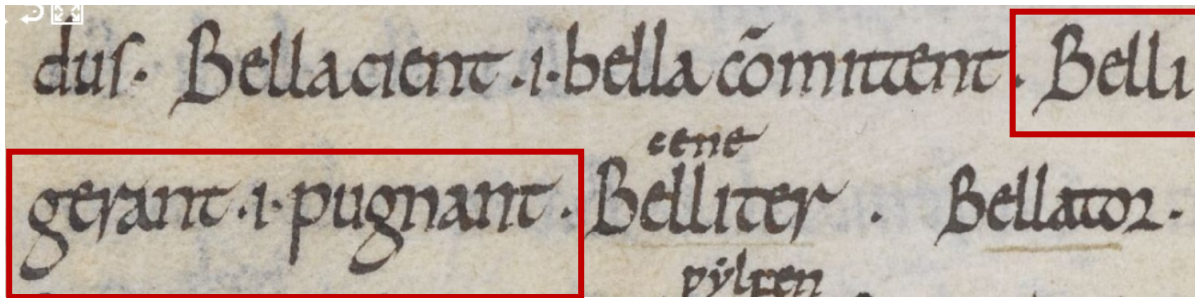 duſ· Bellacient ·i· bella cōmittent · Belli
cene
gerant ·i· pugnant · Belliter · Bellator ·
pẏlfen